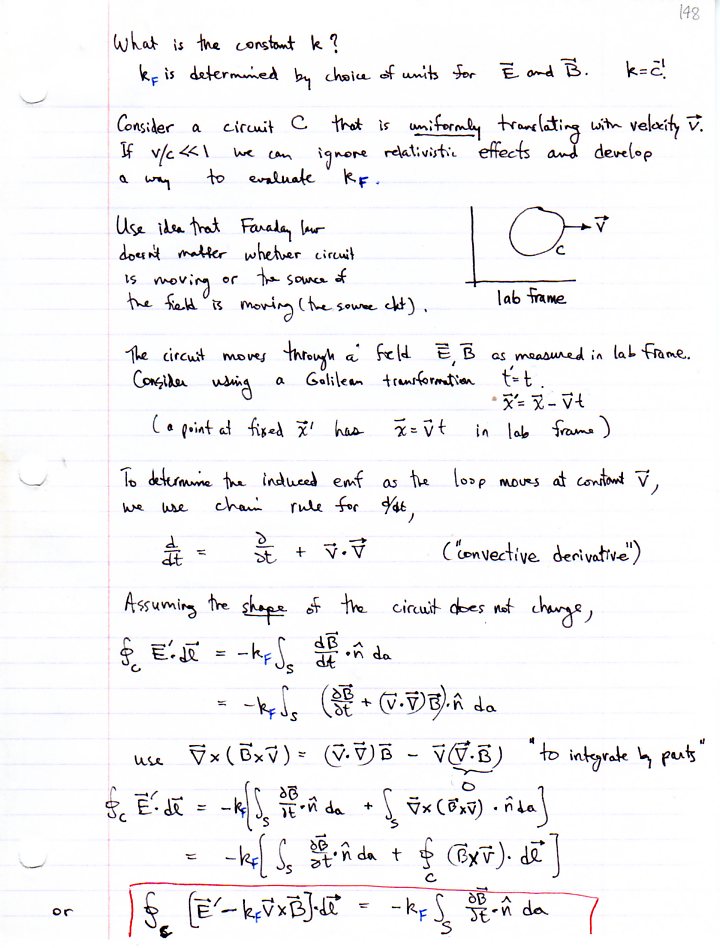 148
What is the constant k?
k_F is determined by choice of units for E⃗ and B⃗. k=c⁻¹.
Consider a circuit C that is uniformly translating with velocity v⃗.
If v/c<<1 we can ignore relativistic effects and develop
a way to evaluate k_F.
Use idea that Faraday law
doesn't matter whether circuit
is moving or the source of
the field is moving (the source ckt).
v⃗
C
lab frame
The circuit moves through a field E⃗, B⃗ as measured in lab frame.
Consider using a Galilean transformation t'=t.
x⃗'= x⃗ - v⃗t
(a point at fixed x⃗' has x⃗ = v⃗t in lab frame)
To determine the induced emf as the loop moves at constant v⃗,
we use chain rule for d/dt,
d/dt = ∂/∂t + v⃗·∇⃗ ("convective derivative")
Assuming the shape of the circuit does not change,
∮_C E⃗'·dl⃗ = -k_F ∫_S dB⃗/dt · n̂ da
= -k_F ∫_S (∂B⃗/∂t + (v⃗·∇⃗)B⃗)·n̂ da
use ∇⃗×(B⃗×v⃗) = (v⃗·∇⃗)B⃗ - v⃗(∇⃗·B⃗) "to integrate by parts"
0
∮_C E⃗'·dl⃗ = -k_F[∫_S ∂B⃗/∂t·n̂ da + ∫_S ∇⃗×(B⃗×v⃗)·n̂ da]
= -k_F[∫_S ∂B⃗/∂t·n̂ da + ∮_C (B⃗×v⃗)·dl⃗]
or ∮_C [E⃗' - k_F v⃗×B⃗]·dl⃗ = -k_F ∫_S ∂B⃗/∂t·n̂ da